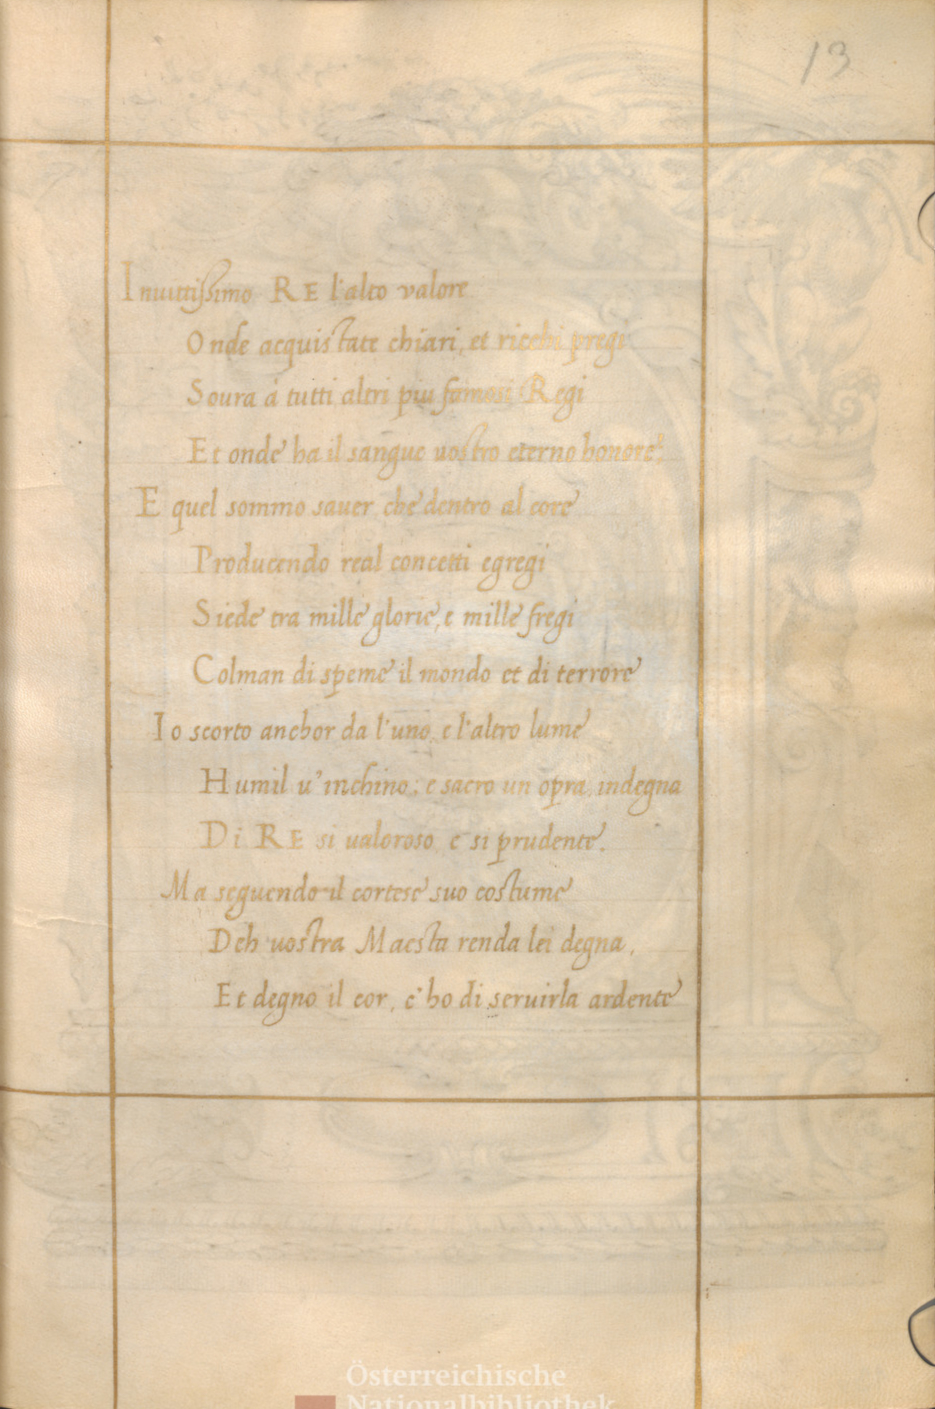 13
Inuittissimo RE l'alto valore
Onde acquistate chiari, et ricchi pregi
Soura á tutti altri piu famosi Regi
Et onde ha il sangue uostro eterno honore;
E quel sommo sauer che dentro al core
Producendo real concetti egregi
Siede tra mille glorie, e mille fregi
Colman di speme il mondo et di terrore
Io scorto anchor da l'uno, e l'altro lume
Humil u'inchino; e sacro un opra, indegna
Di RE si valoroso, e si prudente.
Ma seguendo il cortese suo costume
Deh uostra Maesta renda lei degna,
Et degno il cor, c'ho di seruirla ardente
Österreichische
Nationalbibliothek